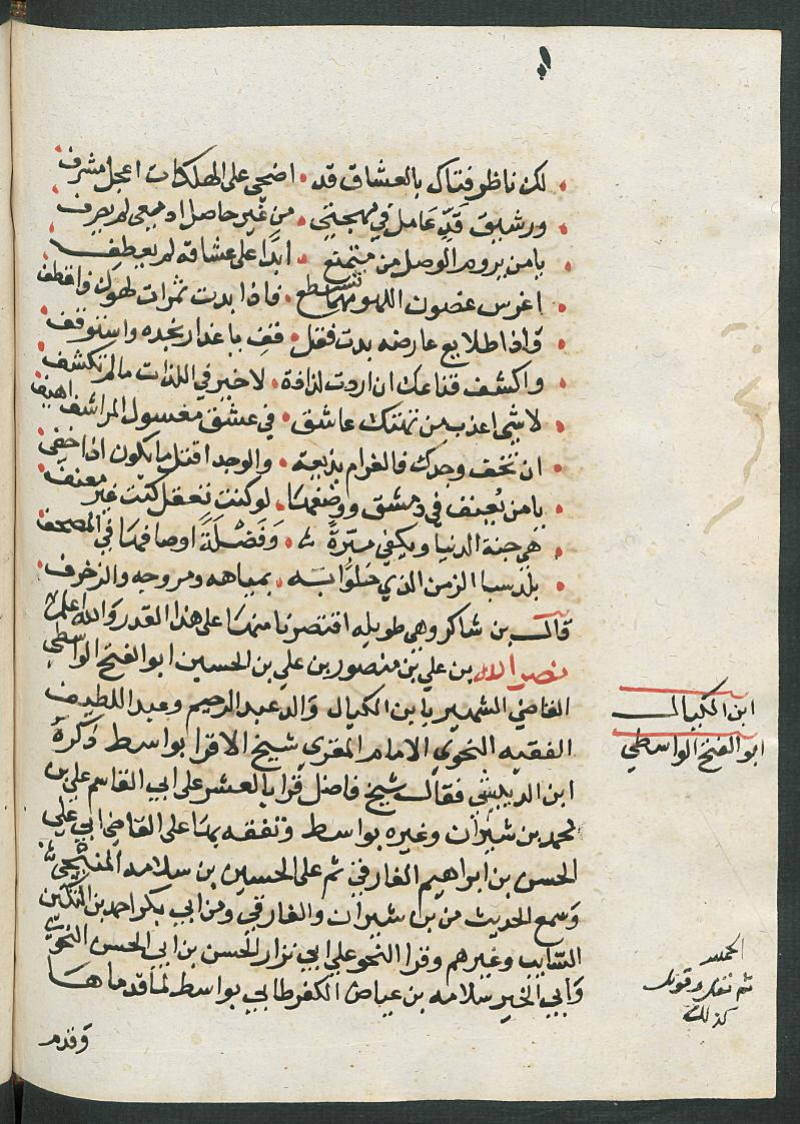 لكن ناظر فتاك بالعشاق قد . اضحى على المهلكات اعجل مشرف
ورشيق قد عامل في مهجتي . من غير حاصل ادمعي لم يصرف
يا من يروم الوصل من متمنع . ابدا على عشاقه لم يعطف
اغرس غصون اللهو مهما تستطع . فاذا بدت ثمرات لهوك فاقطف
واذا طلايع عارضه بدت فقل . قف يا عذار بخده واستوقف
واكشف قناعك ان اردت لذاذة . لا خير في اللذات ما لم تكشف
لا شي اعذب من تهتك عاشق . في عشق مغسول المراشف اهيف
ان تخف وجدك فالغرام يذيعه . والوجد اقتل ما يكون اذا خفي
يا من يعنف في دمشق ووصفها . لو كنت تعقل كنت غير معنف
هي جنة الدنيا ويكفي ميزة . وفضلة اوصافها في المصحف
بلد سبا الزمن الذي حلوا به . بمياهه ومروجه والزخرف
قال بن شاكر وهي طويله اقتصرنا منها على هذا القدر والله اعلم
نصر الله بن علي بن منصور بن علي بن الحسين ابو الفتح الواسطي
القاضي الشهير بابن الكيال والد عبد الرحيم وعبد اللطيف
الفقيه النحوي الامام المقري شيخ الاقرا بواسط ذكره
ابن الدبيثي فقال شيخ فاضل قرا بالعشر على ابي القاسم علي بن
محمد بن شيران وغيره بواسط وتفقه بها على القاضي ابي علي
الحسن بن ابراهيم الفارقي ثم على الحسين بن سلامه المنبجي
وسمع الحديث من بن شيران والفارقي ومن ابي بكر احمد بن
السايب وغيرهم وقرا النحو على ابي نزار الحسن بن ابي الحسن النحوي
وابي الخير سلامه بن عياض الكفرطابي بواسط لما قدماها
وقدم
ابن الكيال
ابو الفتح الواسطي